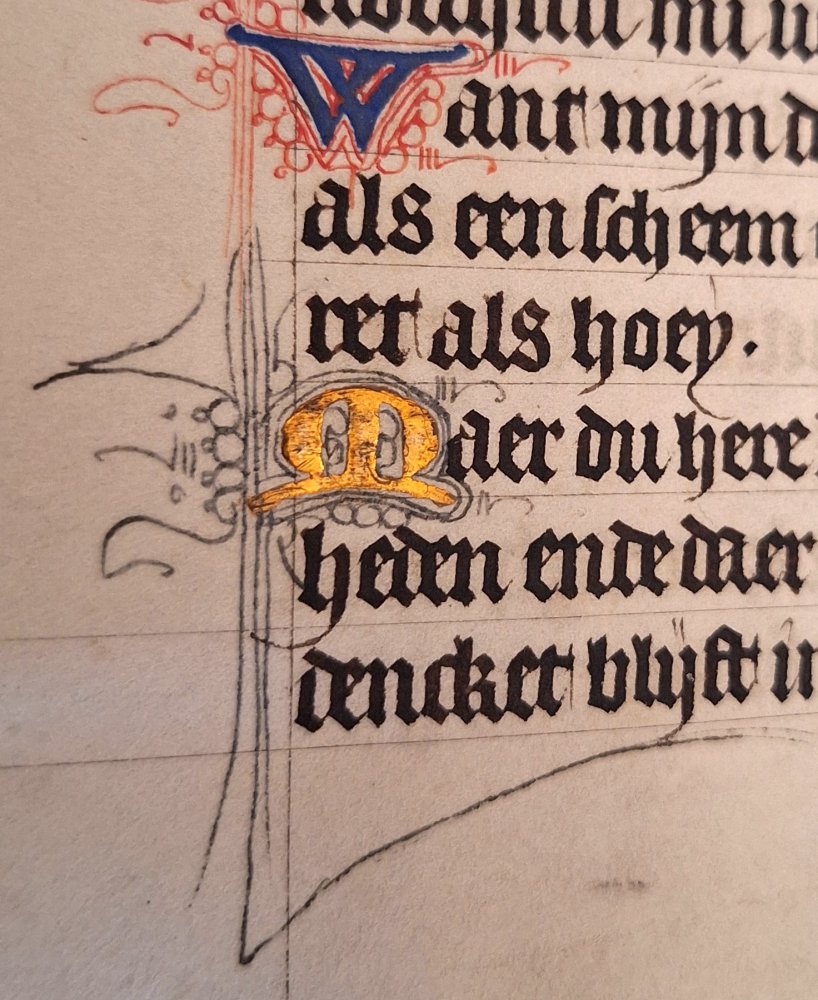 Want mijn d
als een scheem
ret als hoey.
Maer du here
heden ende daer
dencket blijft in